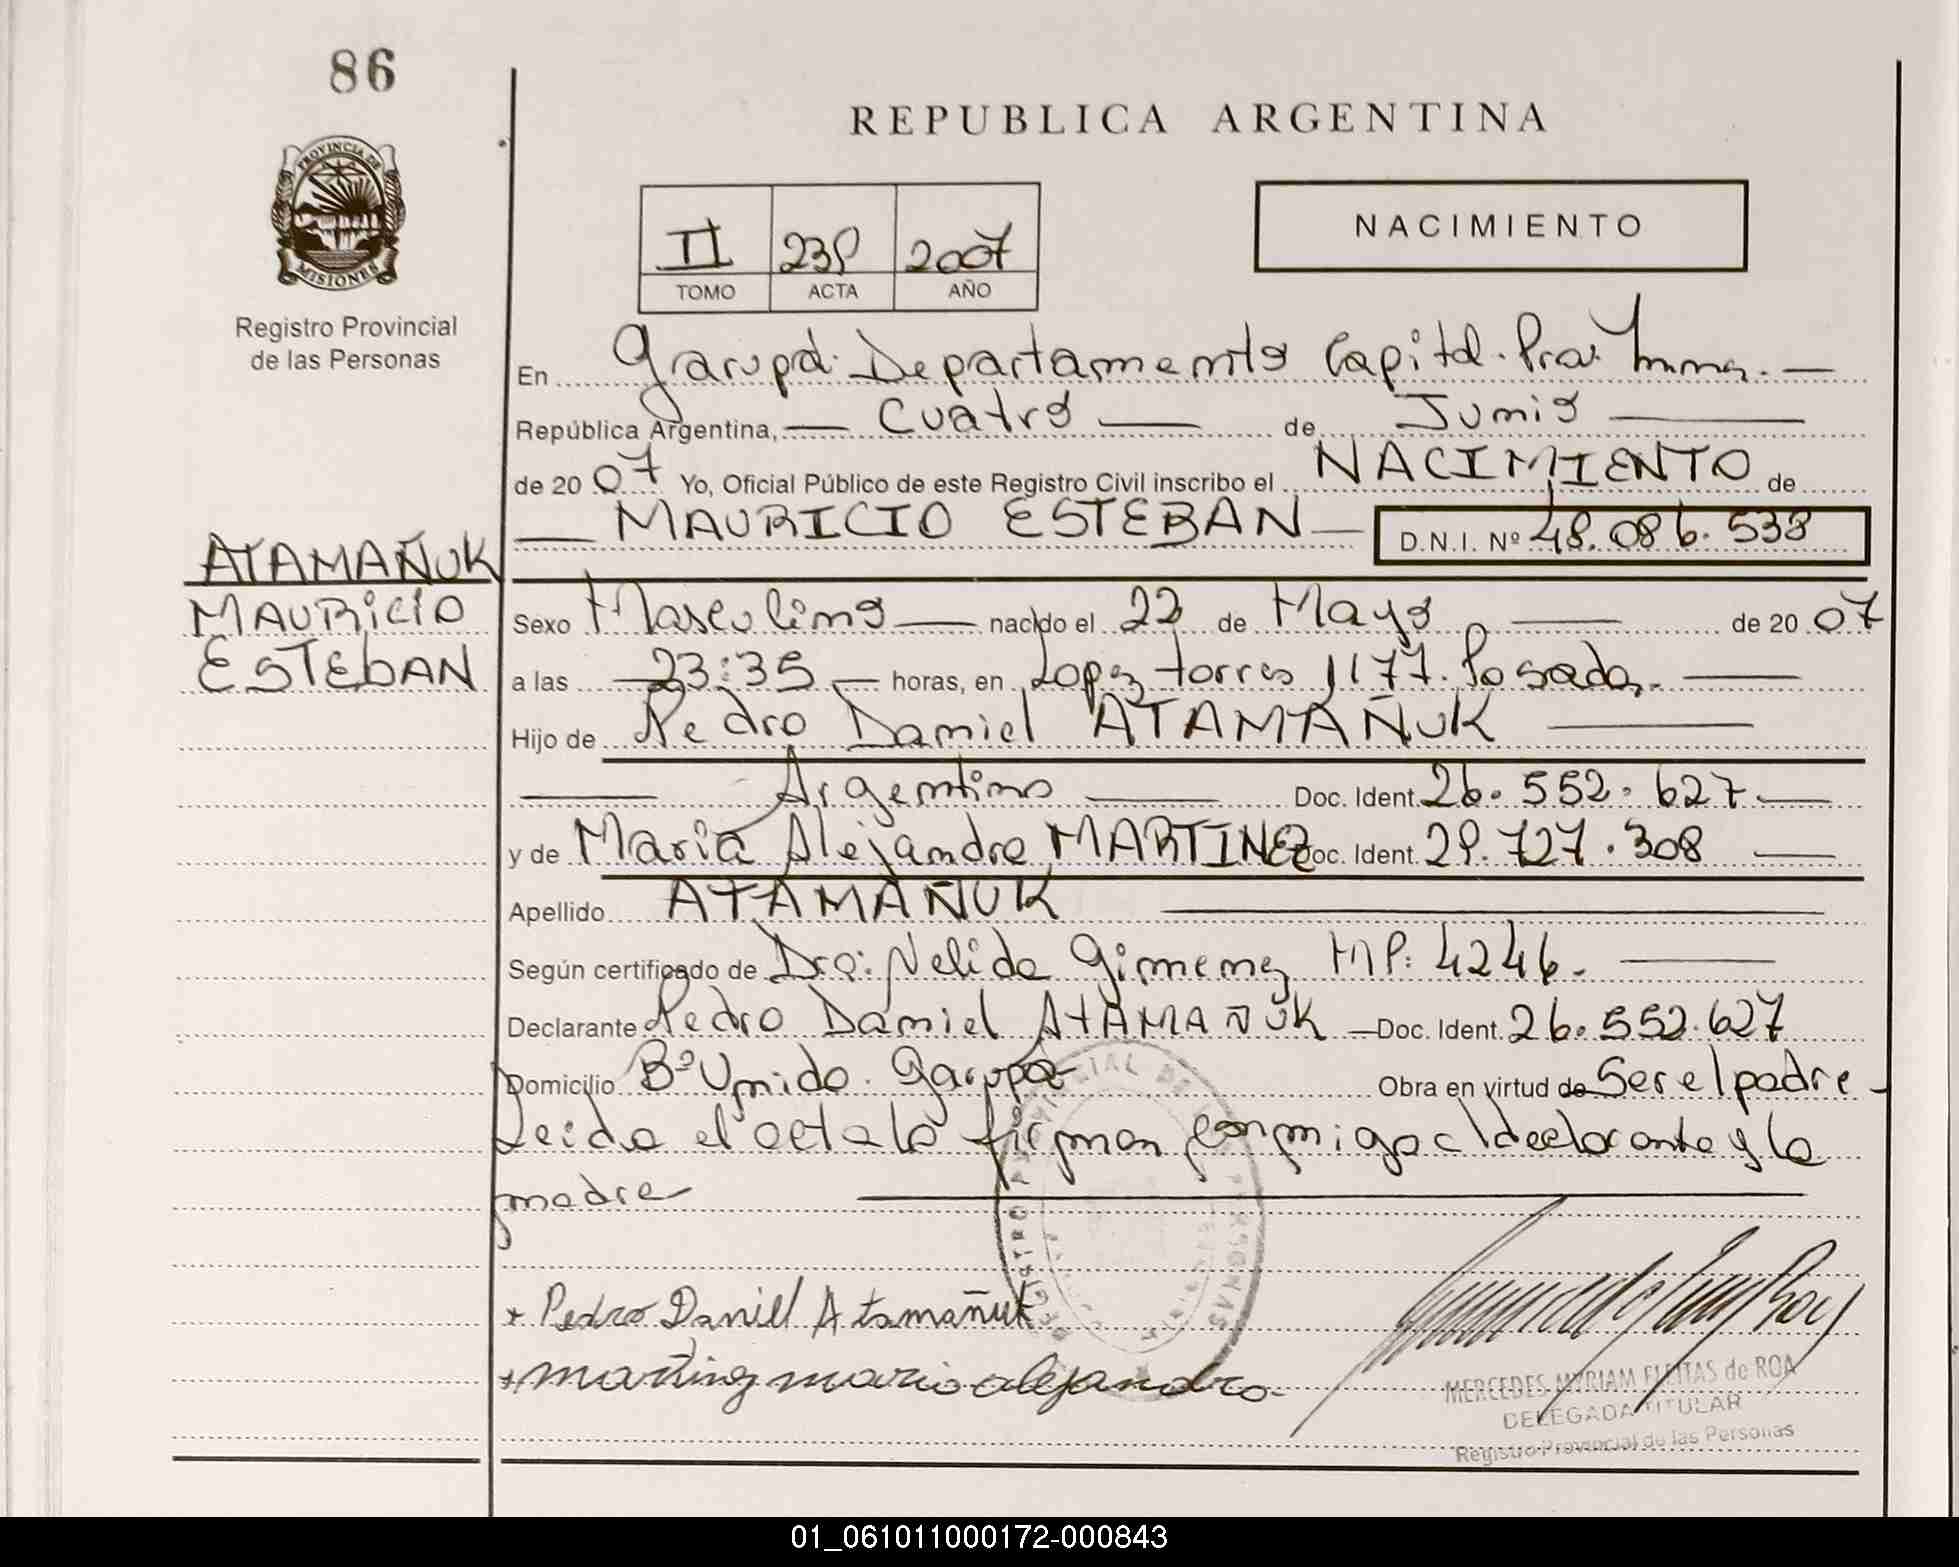 86
REPUBLICA ARGENTINA
PROVINCIA DE
MISIONES
Registro Provincial
de las Personas
NACIMIENTO
II 239 2007
TOMO ACTA AÑO
En Garupá. Departamento Capital. Pcia. Mnes. —
República Argentina, — Cuatro — de Junio —
de 2007 Yo, Oficial Público de este Registro Civil inscribo el NACIMIENTO de
— MAURICIO ESTEBAN — D.N.I. Nº 48.086.538
ATAMAÑUK
MAURICIO
ESTEBAN
Sexo Masculino — nacido el 22 de Mayo — de 2007
a las — 23:35 — horas, en Lopez torres 1177. Posadas. —
Hijo de Pedro Daniel ATAMAÑUK —
— Argentino — Doc. Ident. 26.552.627 —
y de Maria Alejandra MARTINEZ Doc. Ident. 29.727.308 —
Apellido ATAMAÑUK —
Según certificado de Dra: Nelida Gimenez MP: 4246. —
Declarante Pedro Daniel ATAMAÑUK — Doc. Ident. 26.552.627
Domicilio Bº Unido. Garupá Obra en virtud de Ser el padre -
Leida el acta la firman conmigo el declarante y la
madre —
+ Pedro Daniel Atamañuk
+ martinez maria alejandra
MERCEDES MYRIAM FLEITAS de ROA
DELEGADA TITULAR
Registro Provincial de las Personas
01_061011000172-000843